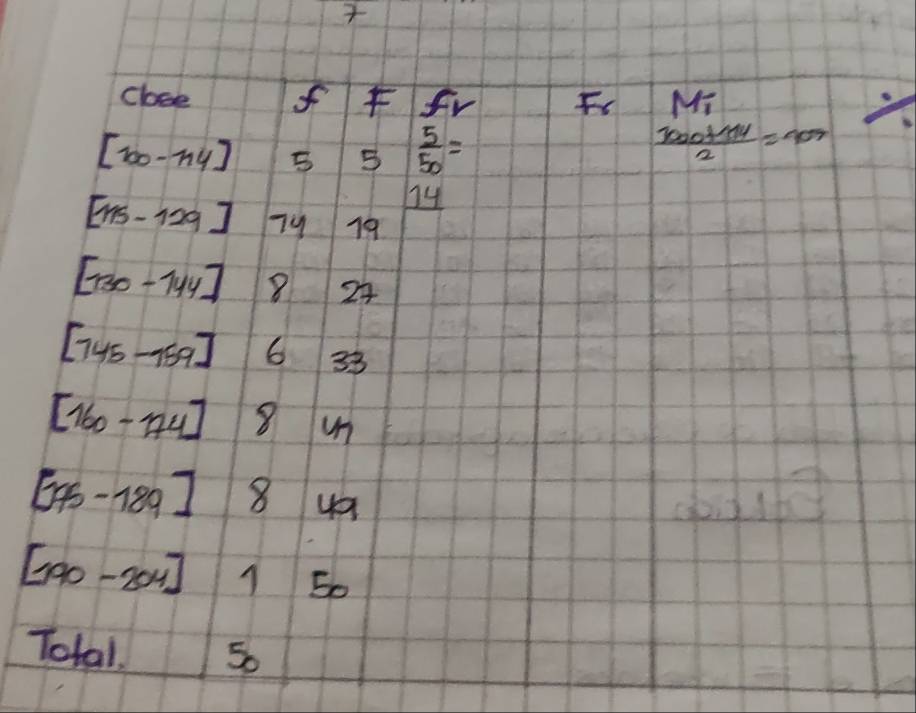 7
Clase f F fr Fr Mi
[100-114] 5 5 5/50 = 100+114/2 = 107
14
[115-129] 14 19
[130-144] 8 27
[145-159] 6 33
[160-174] 8 41
[175-189] 8 49
[190-204] 1 50
Total. 50